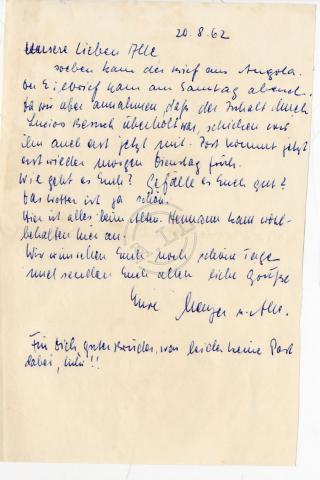 20.8.62
Unsere lieben Alle
soeben kam der Brief aus Angola.
Der Eilbrief kam am Samstag abend.
Da wir aber annahmen daß der Inhalt durch
Lucios Besuch überholt war, schicken wir
ihn auch erst jetzt mit. Post kommt jetzt
erst wieder morgen Dienstag früh.
Wie geht es Euch? Gefällt es Euch gut?
Das Wetter ist ja schön.
Hier ist alles beim Alten. Hermann kam wohl-
behalten hier an.
Wir wünschen Euch noch schöne Tage
und senden Euch allen liebe Grüße
Eure u. Alle.
Für Dich guter Bruder, war leider keine Post
dabei, !!